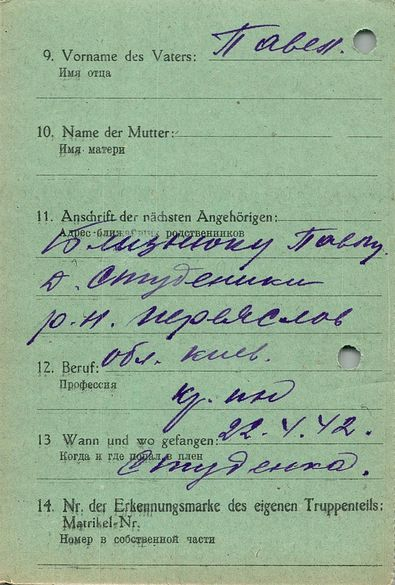 9. Vorname des Vaters: Павел.
Имя отца
10. Name der Mutter:
Имя матери
11. Anschrift der nächsten Angehörigen:
Адрес ближайших родственников
Близнюку Павлу.
д. Студеники
р-н. Переяслов
обл. Киев.
12. Beruf:
Профессия
13 Wann und wo gefangen: 22.4.42.
Когда и где попал в плен
Студенка.
14. Nr. der Erkennungsmarke des eigenen Truppenteils:
Matrikel-Nr.
Номер в собственной части